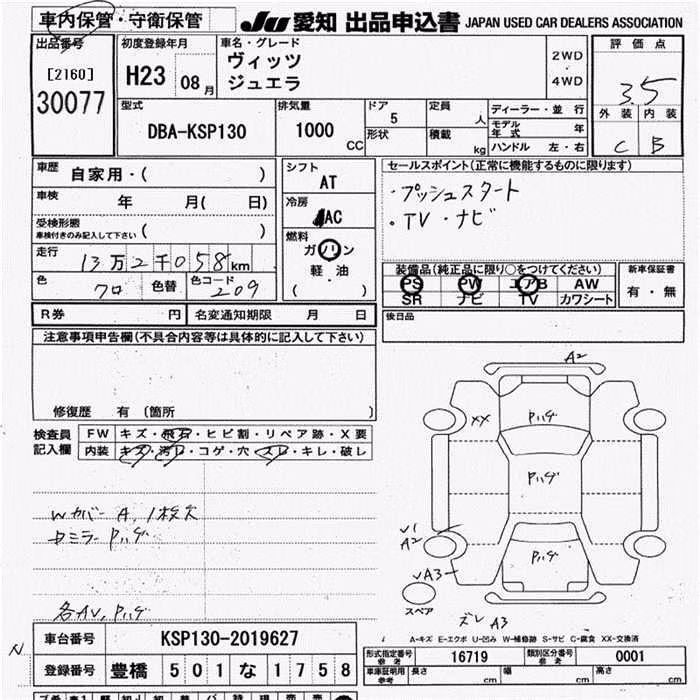 車内保管・守衛保管
JU 愛知 出品申込書 JAPAN USED CAR DEALERS ASSOCIATION
出品番号
[2160]
30077
初度登録年月
H23 08月
車名・グレード
ヴィッツ
ジュエラ
2WD
・
4WD
評価点
3.5
外装 内装
C B
型式
DBA-KSP130
排気量
1000 CC
ドア
5
形状
定員
人
積載
kg
ディーラー・並行
モデル年式 年
ハンドル 左・右
車歴
自家用・( )
車検
年 月( 日)
受検形態
車検付きのみ記入して下さい ( )
走行
13万2千058km
色
クロ
色替
色コード
209
シフト
AT
冷房
AC
燃料
ガソリン
軽・油
( )
セールスポイント(正常に機能するものに限ります)
・プッシュスタート
・TV・ナビ
装備品(純正品に限り○をつけてください)
PS PW エアB AW
SR ナビ TV カワシート
新車保証書
有・無
R券 円
名変通知期限 月 日
後日品
注意事項申告欄(不具合内容等は具体的に記入して下さい)
修復歴 有 〔箇所 〕
検査員
記入欄
FW キズ・飛石・ヒビ割・リペア跡・X要
内装 キズ・汚レ・コゲ・穴・スレ・キレ・破レ
Wカバー A, 1枚欠
ドミラー Pハゲ
各AV, Pハゲ
A2
XX
Pハゲ
Pハゲ
Pハゲ
√1
A2
√A3
スペア
ズレ A3
A-キズ E-エクボ U-凹み W-補修跡 S-サビ C-腐食 XX-交換済
N
車台番号 KSP130-2019627
登録番号 豊橋 501 な 1758
形式指定番号
参考
16719
類別区分番号
参考
0001
車庫証明用
参考
長さ cm 幅 cm 高さ cm